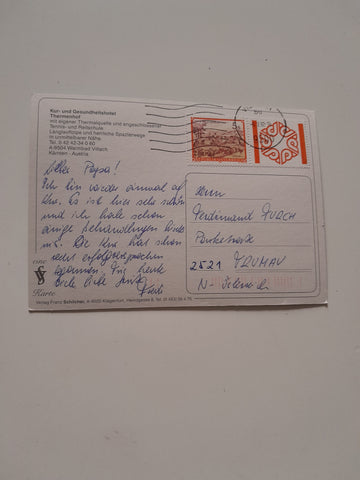 Kur- und Gesundheitshotel
Thermenhof
mit eigener Thermalquelle und angeschlossener
Tennis- und Reitschule.
Langlaufloipe und herrliche Spazierwege
in unmittelbarer Nähe.
Tel. 0 42 42-34 0 60
A-9504 Warmbad Villach
Kärnten - Austria
Lieber Papa!
Ich bin wieder einmal auf
Kur. Es ist hier sehr schön
und ich habe schon
einige Behandlungen hinter
mir. Die Kur hat schon
recht erfolgversprechend
begonnen. Für heute
viele liebe
eine
VS
Karte
Herrn
Ferdinand
2521 TRUMAU
Verlag Franz Schilcher, A-9020 Klagenfurt